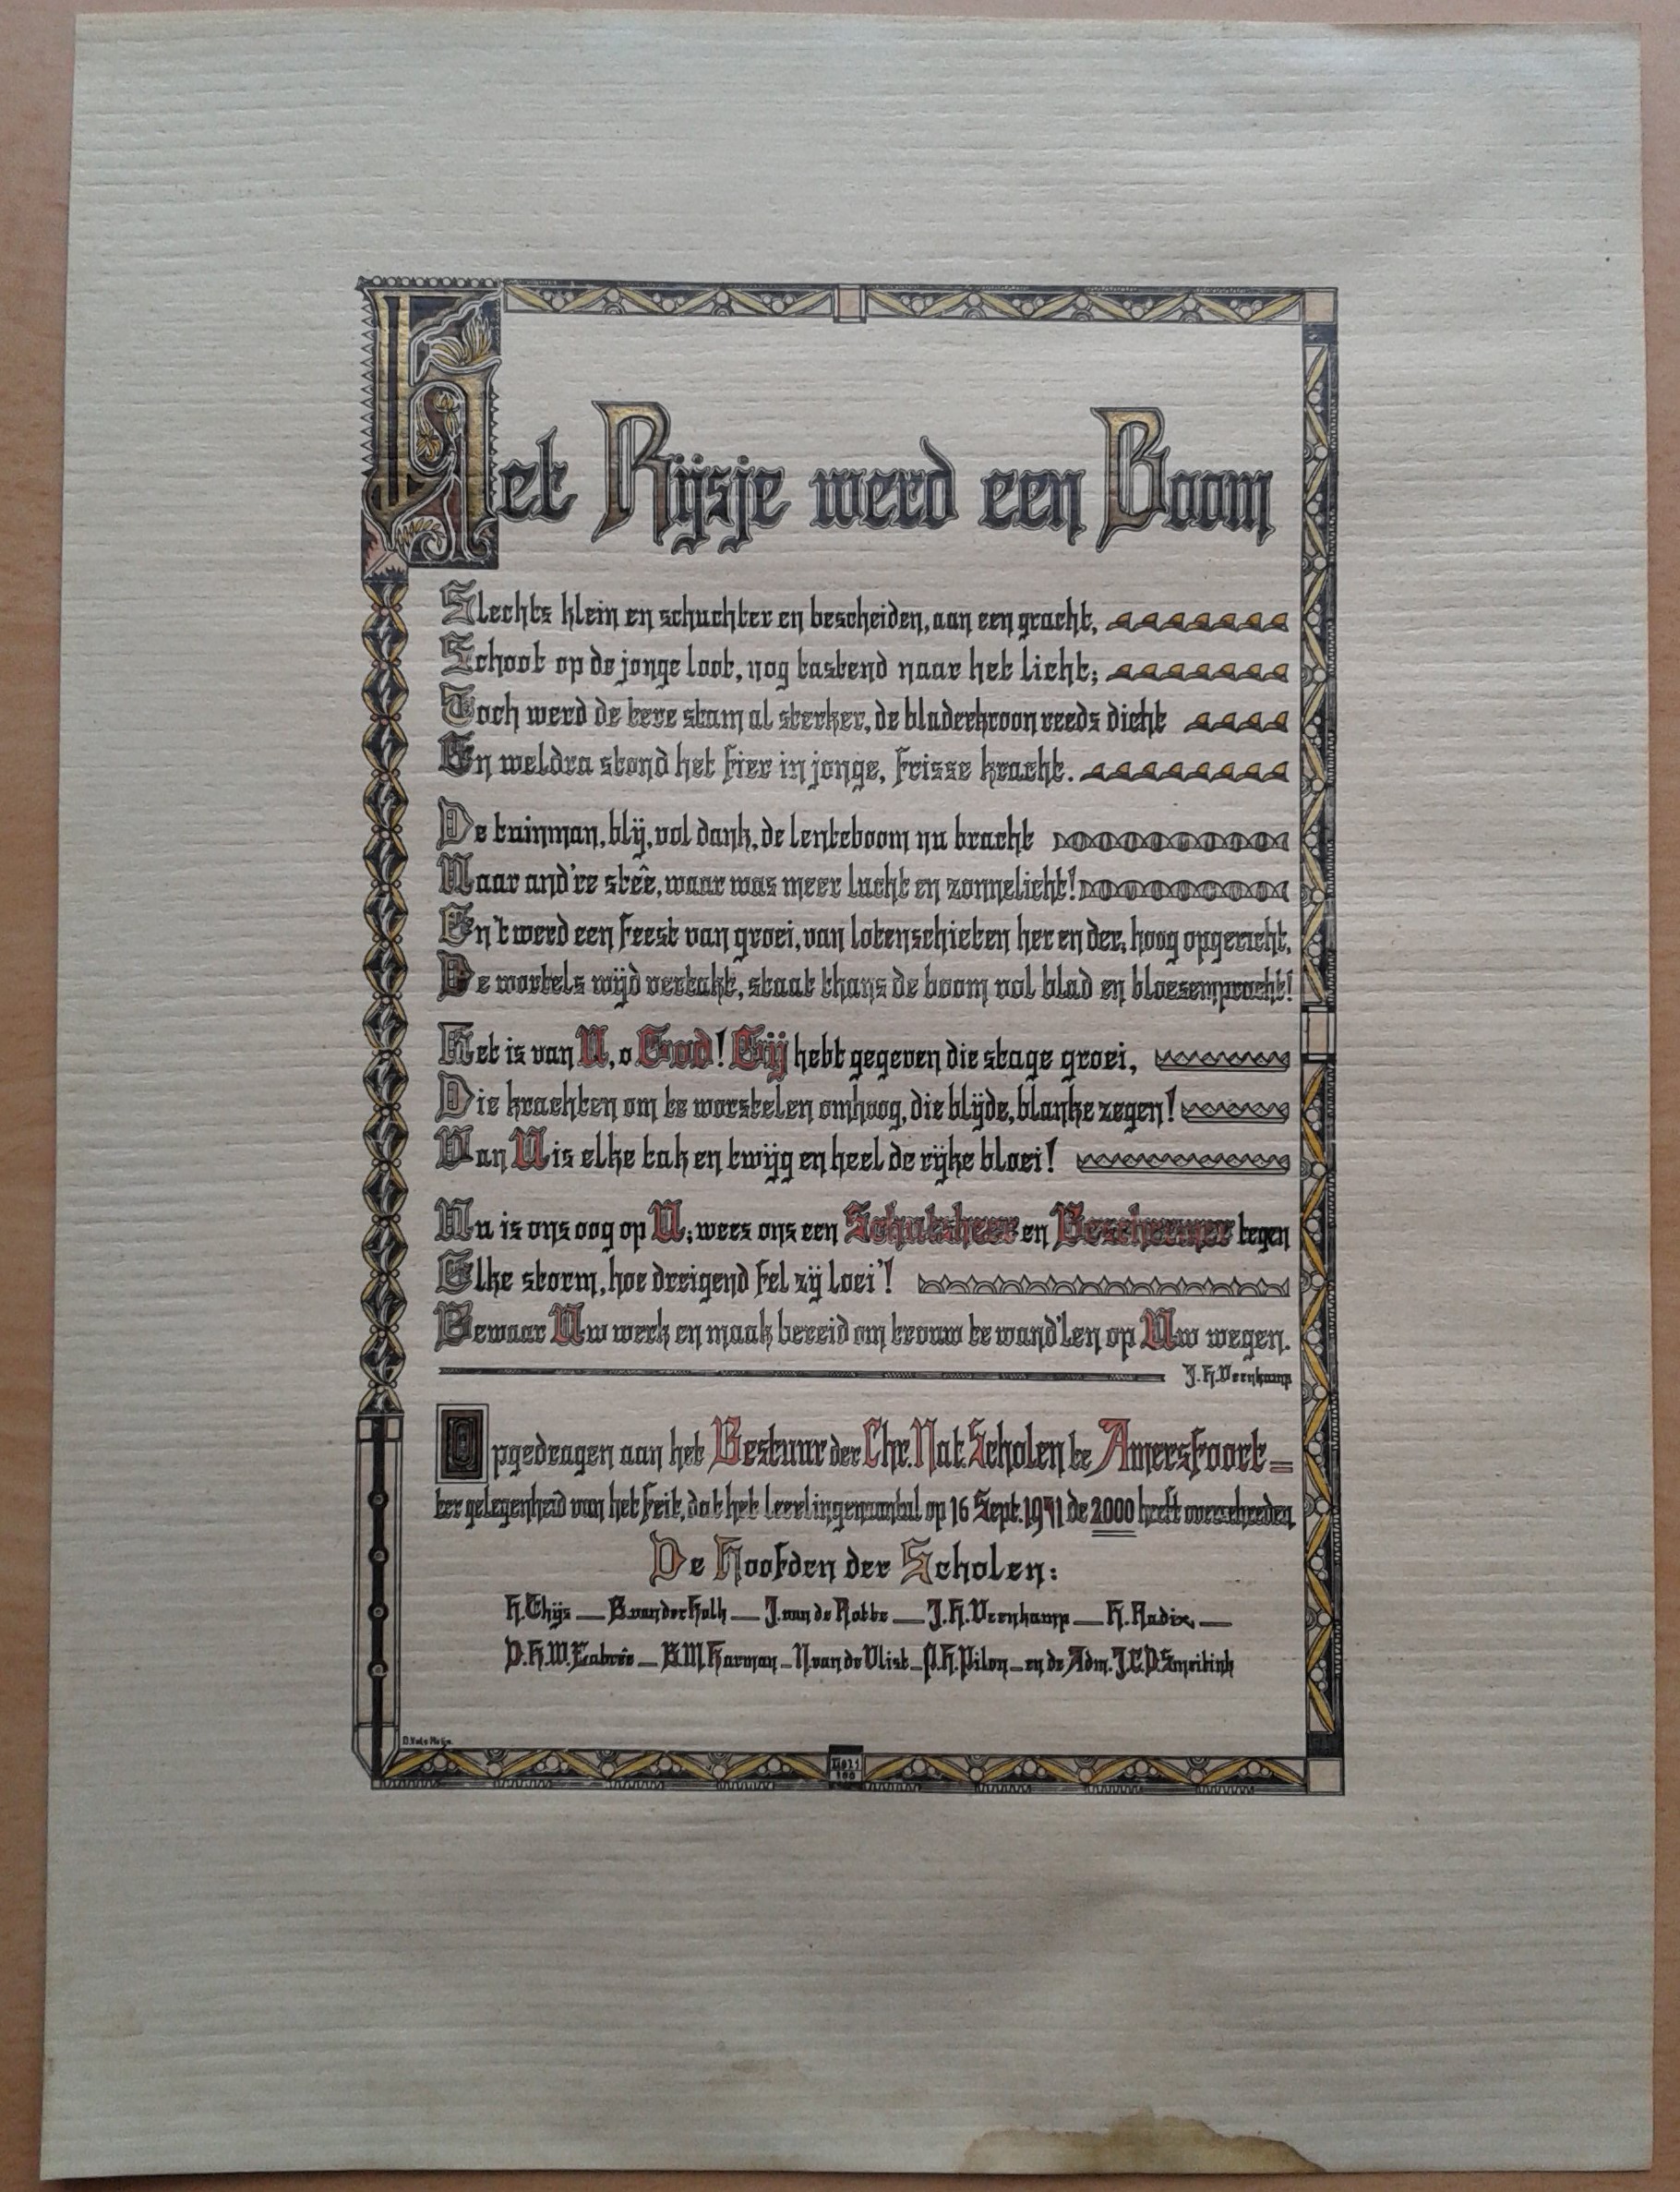 Het Rijsje werd een Boom
Slechts klein en schuchter en bescheiden, aan een gracht,
Schoot op de jonge loot, nog tastend naar het licht;
Toch werd de tere stam al sterker, de bladerkroon reeds dicht
En weldra stond het fier in jonge, frisse kracht.
De tuinman, blij, vol dank, de lenteboom nu bracht
Naar and're steê, waar was meer lucht en zonnelicht!
En 't werd een feest van groei, van lotenschieten her en der, hoog opgericht,
De wortels wijd vertakt, staat thans de boom vol blad en bloesempracht!
Het is van U, o God! Gij hebt gegeven die stage groei,
Die krachten om te worstelen omhoog, die blijde, blanke zegen!
Van U is elke tak en twijg en heel de rijke bloei!
Nu is ons oog op U; wees ons een Schutsheer en Beschermer tegen
Elke storm, hoe dreigend fel zij loei'!
Bewaar Uw werk en maak bereid om trouw te wand'len op Uw wegen.
J. H. Veenkamp
Opgedragen aan het Bestuur der Chr. Nat. Scholen te Amersfoort
ter gelegenheid van het feit, dat het leerlingenaantal op 16 Sept. 1951 de 2000 heeft overschreden
De Hoofden der Scholen:
H. Thijs — B. van der Kolk — J. van de Rotte — J. H. Veenkamp — H. Radix —
D. H. W. Labrée — B. M. Harman — N. van de Vlist — P. H. Pilon — en de Adm. J. C. D. Smeitink